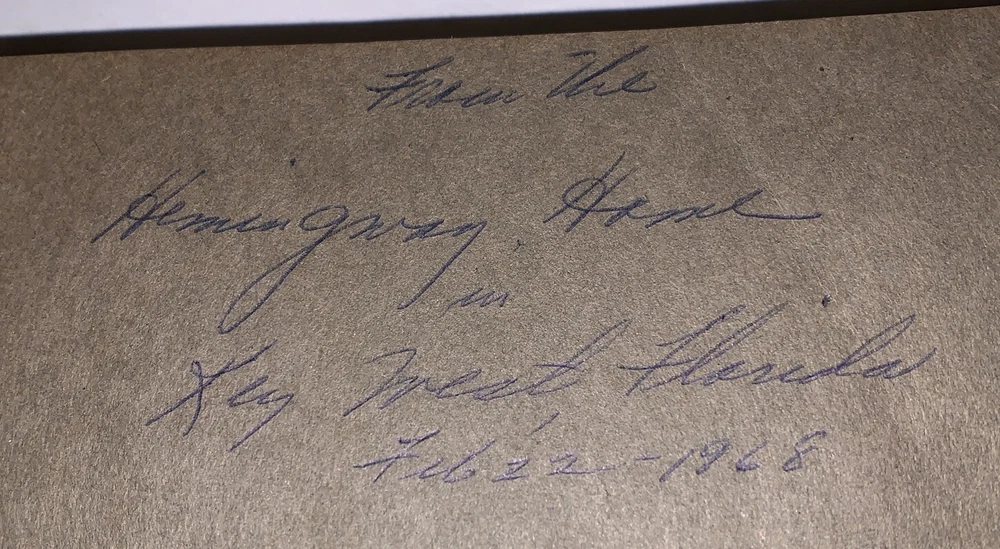 From The
Hemingway Home
in
Key West Florida
Feb 22 - 1968